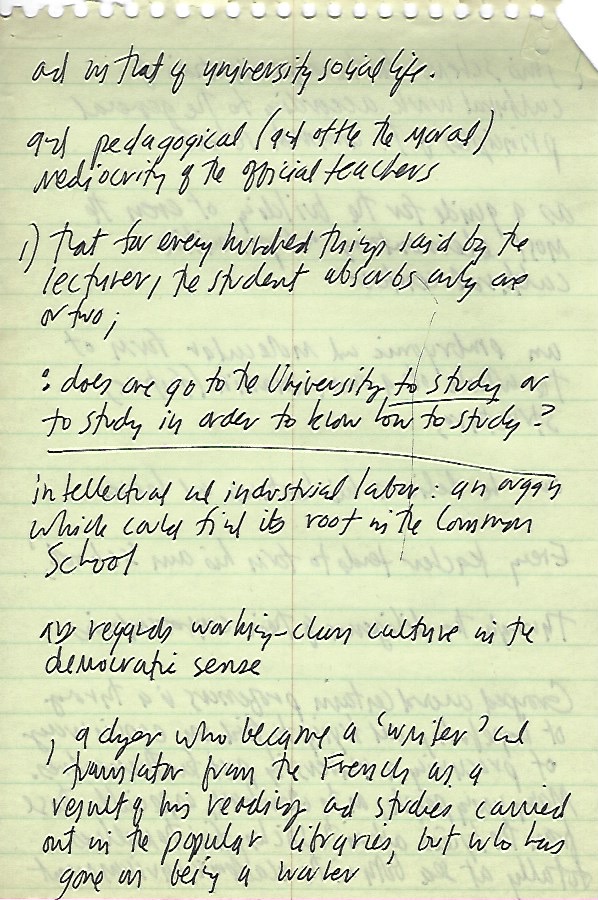 and in that of university social life.
and pedagogical (and often the moral)
mediocrity of the official teachers
1) that for every hundred things said by the
lecturer, the student absorbs only one
or two;
: does one go to the University to study or
to study in order to know how to study?
intellectual and industrial labor: an organ
which could find its root in the Common
School
as regards working-class culture in the
democratic sense
, a dyer who became a 'writer' and
translator from the French as a
result of his reading and studies carried
out in the popular libraries, but who has
gone on being a worker